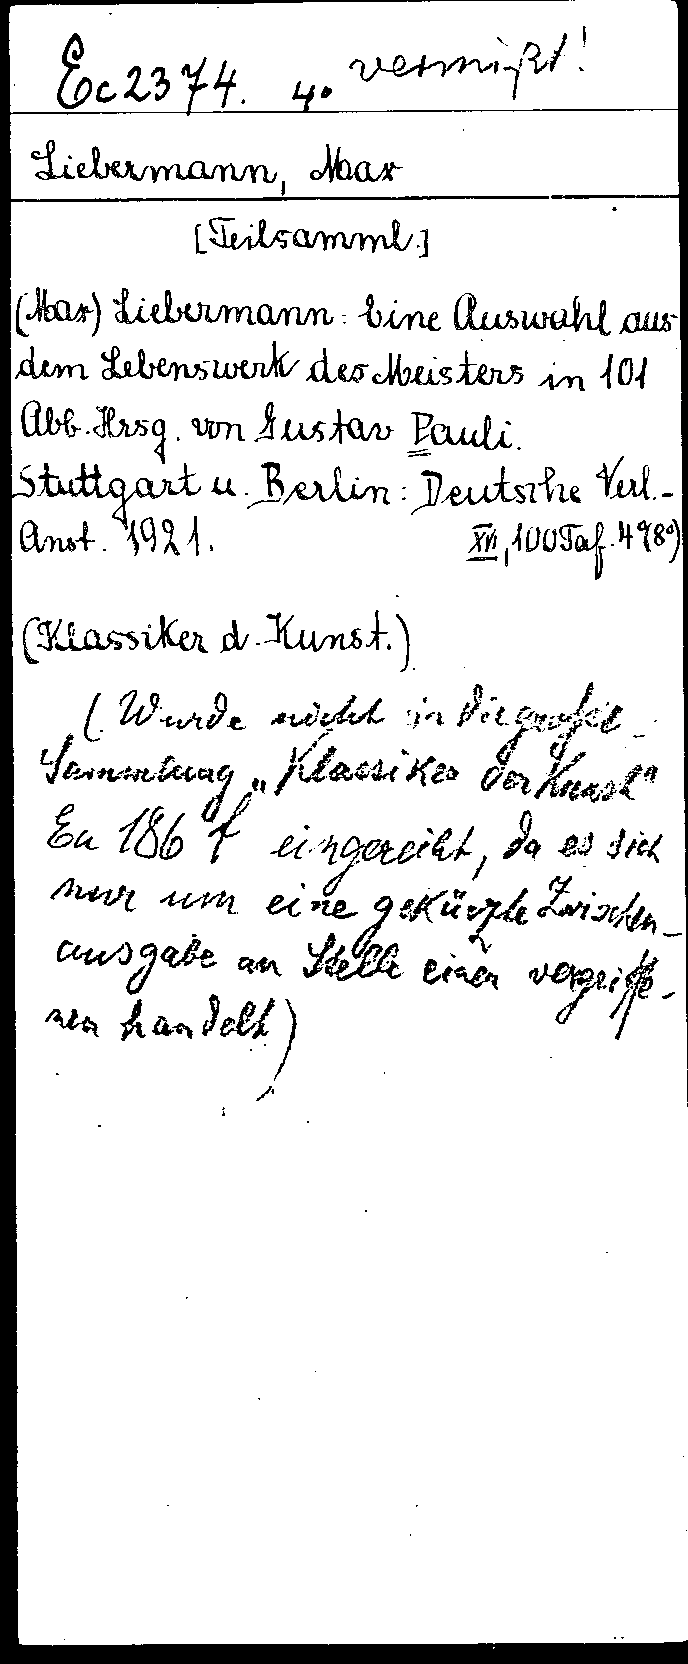 Ec 2374. 4° vermißt!
Liebermann, Max
[Teilsamml.]
(Max) Liebermann: Eine Auswahl aus
dem Lebenswerk des Meisters in 101
Abb. Hrsg. von Gustav Pauli.
Stuttgart u. Berlin: Deutsche Verl.-
Anst. 1921. XVI, 100 Taf. 4°(8°)
(Klassiker d. Kunst.)
(Wurde nicht in die große
Sammlung „Klassiker der Kunst“
Ea 186 f eingereiht, da es sich
nur um eine gekürzte Zwischen-
ausgabe an Stelle einer vergriffe-
nen handelt)